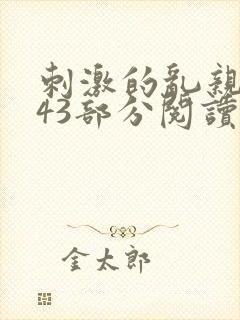 刺激的亂親
43部分閱讀
金太郎